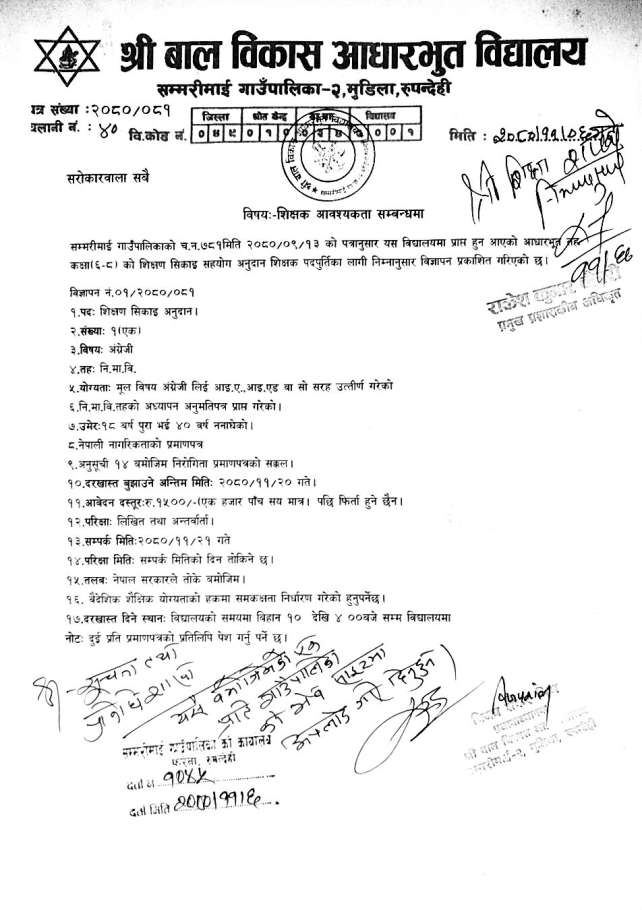 श्री बाल विकास आधारभुत विद्यालय
सम्मरीमाई गाउँपालिका-२,मुडिला,रुपन्देही
पत्र संख्या :२०८०/०८१
चलानी नं. : ४०
वि.कोड नं.
जिल्ला श्रोत केन्द्र विद्यालय
०४९०१० ००१
मिति : २०८०/११/०६
सरोकारवाला सबै
विषयः-शिक्षक आवश्यकता सम्बन्धमा
सम्मरीमाई गाउँपालिकाको च.न.७८१मिति २०८०/०९/१३ को पत्रानुसार यस विद्यालयमा प्राप्त हुन आएको आधारभूत तह
कक्षा(६-८) को शिक्षण सिकाइ सहयोग अनुदान शिक्षक पदपुर्तिका लागी निम्नानुसार विज्ञापन प्रकाशित गरिएको छ।
विज्ञापन नं.०१/२०८०/०८१
१.पदः शिक्षण सिकाइ अनुदान।
२.संख्याः १(एक)
३.बिषयः अंग्रेजी
४.तहः नि.मा.वि.
५.योग्यताः मूल विषय अंग्रेजी लिई आइ.ए.,आइ.एड वा सो सरह उत्तीर्ण गरेको
६.नि.मा.वि.तहको अध्यापन अनुमतिपत्र प्राप्त गरेको।
७.उमेरः१८ बर्ष पुरा भई ४० वर्ष ननाघेको।
८.नेपाली नागरिकताको प्रमाणपत्र
९.अनुसूची १४ बमोजिम निरोगिता प्रमाणपत्रको सक्कल।
१०.दरखास्त बुझाउने अन्तिम मितिः २०८०/११/२० गते।
११.आवेदन दस्तूरःरु.१५००/-(एक हजार पाँच सय मात्र। पछि फिर्ता हुने छैन।
१२.परिक्षाः लिखित तथा अन्तर्वार्ता।
१३.सम्पर्क मितिः२०८०/११/२१ गते
१४.परिक्षा मितिः सम्पर्क मितिको दिन तोकिने छ।
१५.तलबः नेपाल सरकारले तोके बमोजिम।
१६. बैदेशिक शैक्षिक योग्यताको हकमा समकक्षता निर्धारण गरेको हुनुपर्नेछ।
१७.दरखास्त दिने स्थानः विद्यालयको समयमा बिहान १० देखि ४ ००बजे सम्म विद्यालयमा
नोटः दुई प्रति प्रमाणपत्रको प्रतिलिपि पेश गर्नु पर्ने छ।
राकेश कुमार
प्रमुख प्रशासकीय अधिकृत
सूचना तथा
सम्मरीमाई गाउँपालिका को कार्यालय
फरेना, रुपन्देही
दर्ता नं १०४५
दर्ता मिति २०८०/११/६